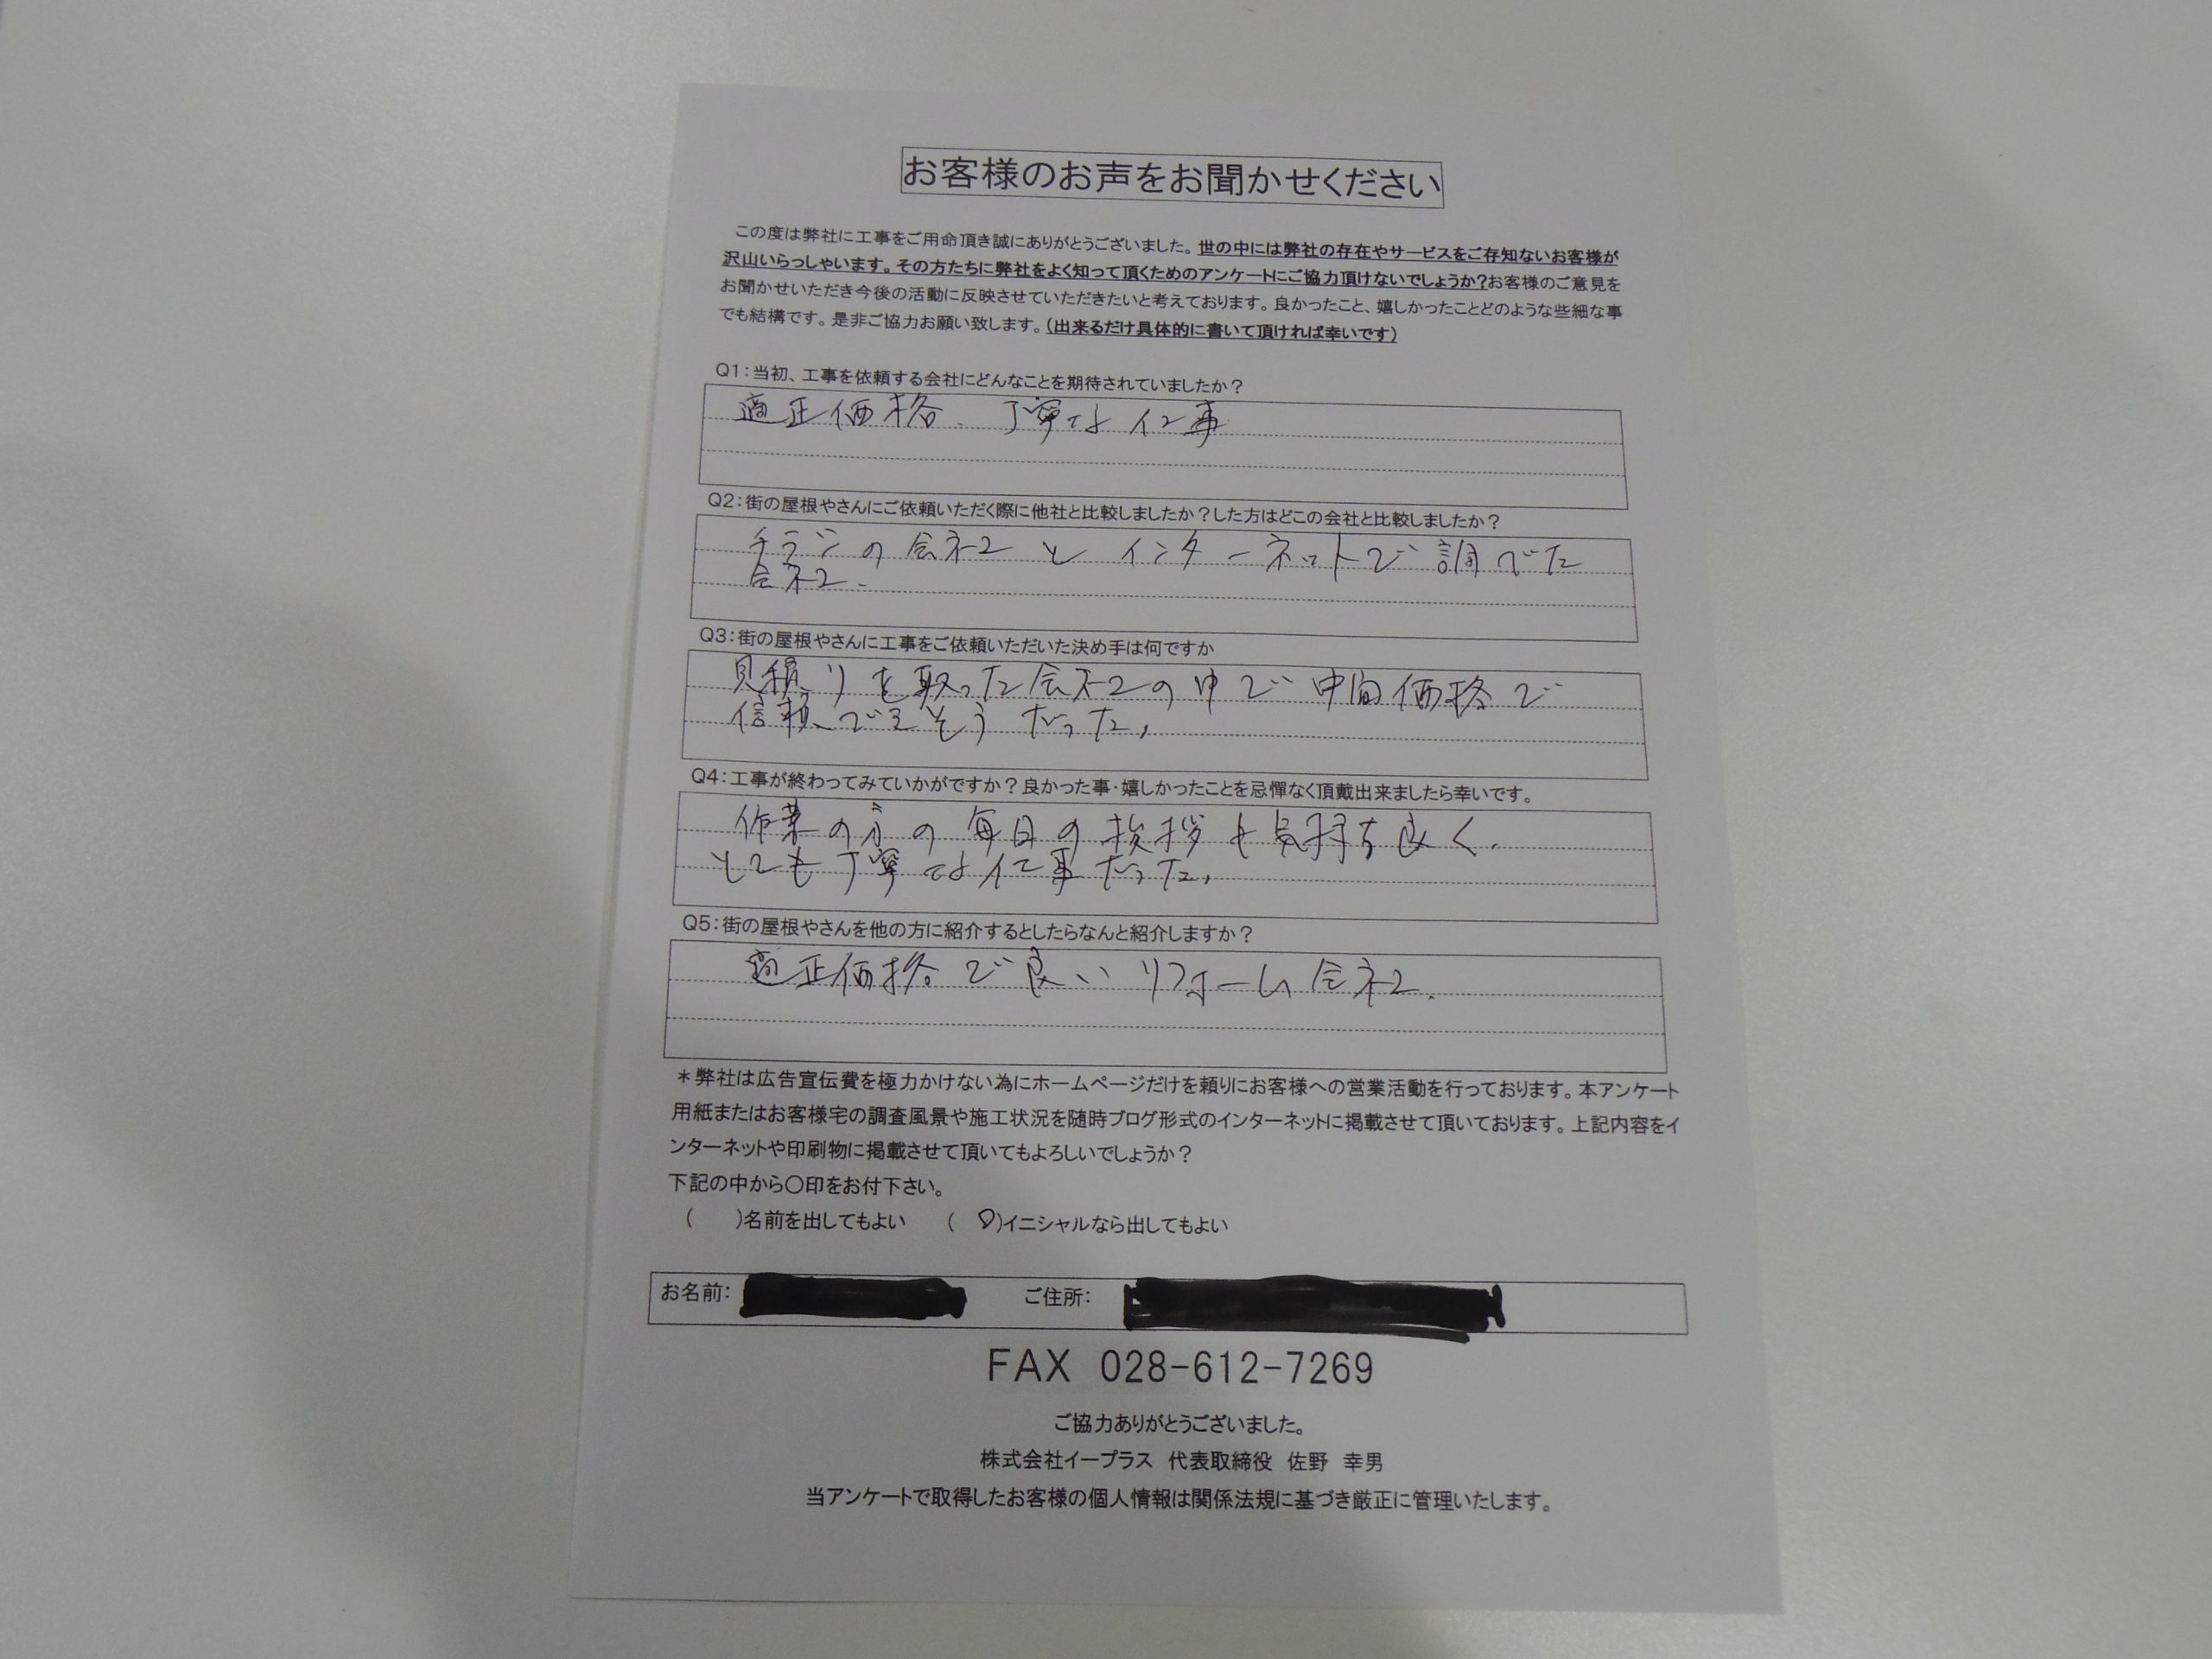 お客様のお声をお聞かせください
この度は弊社に工事をご用命頂き誠にありがとうございました。世の中には弊社の存在やサービスをご存知ないお客様が
沢山いらっしゃいます。その方たちに弊社をよく知って頂くためのアンケートにご協力頂けないでしょうか?お客様のご意見を
お聞かせいただき今後の活動に反映させていただきたいと考えております。良かったこと、嬉しかったことどのような些細な事
でも結構です。是非ご協力お願い致します。(出来るだけ具体的に書いて頂ければ幸いです)
Q1:当初、工事を依頼する会社にどんなことを期待されていましたか?
適正価格、丁寧な仕事
Q2:街の屋根やさんにご依頼いただく際に他社と比較しましたか?した方はどこの会社と比較しましたか?
チラシの会社とインターネットで調べた
会社.
Q3:街の屋根やさんに工事をご依頼いただいた決め手は何ですか
見積りを取った会社の中で中間価格で
信頼できそうだった,
Q4:工事が終わってみていかがですか?良かった事・嬉しかったことを忌憚なく頂戴出来ましたら幸いです。
作業の方の毎日の挨拶も気持ち良く、
とても丁寧な仕事だった,
Q5:街の屋根やさんを他の方に紹介するとしたらなんと紹介しますか?
適正価格で良いリフォーム会社.
*弊社は広告宣伝費を極力かけない為にホームページだけを頼りにお客様への営業活動を行っております。本アンケート
用紙またはお客様宅の調査風景や施工状況を随時ブログ形式のインターネットに掲載させて頂いております。上記内容をイ
ンターネットや印刷物に掲載させて頂いてもよろしいでしょうか?
下記の中から〇印をお付下さい。
(　　)名前を出してもよい　　(　○)イニシャルなら出してもよい
お名前:　ご住所:
FAX 028-612-7269
ご協力ありがとうございました。
株式会社イープラス 代表取締役 佐野 幸男
当アンケートで取得したお客様の個人情報は関係法規に基づき厳正に管理いたします。